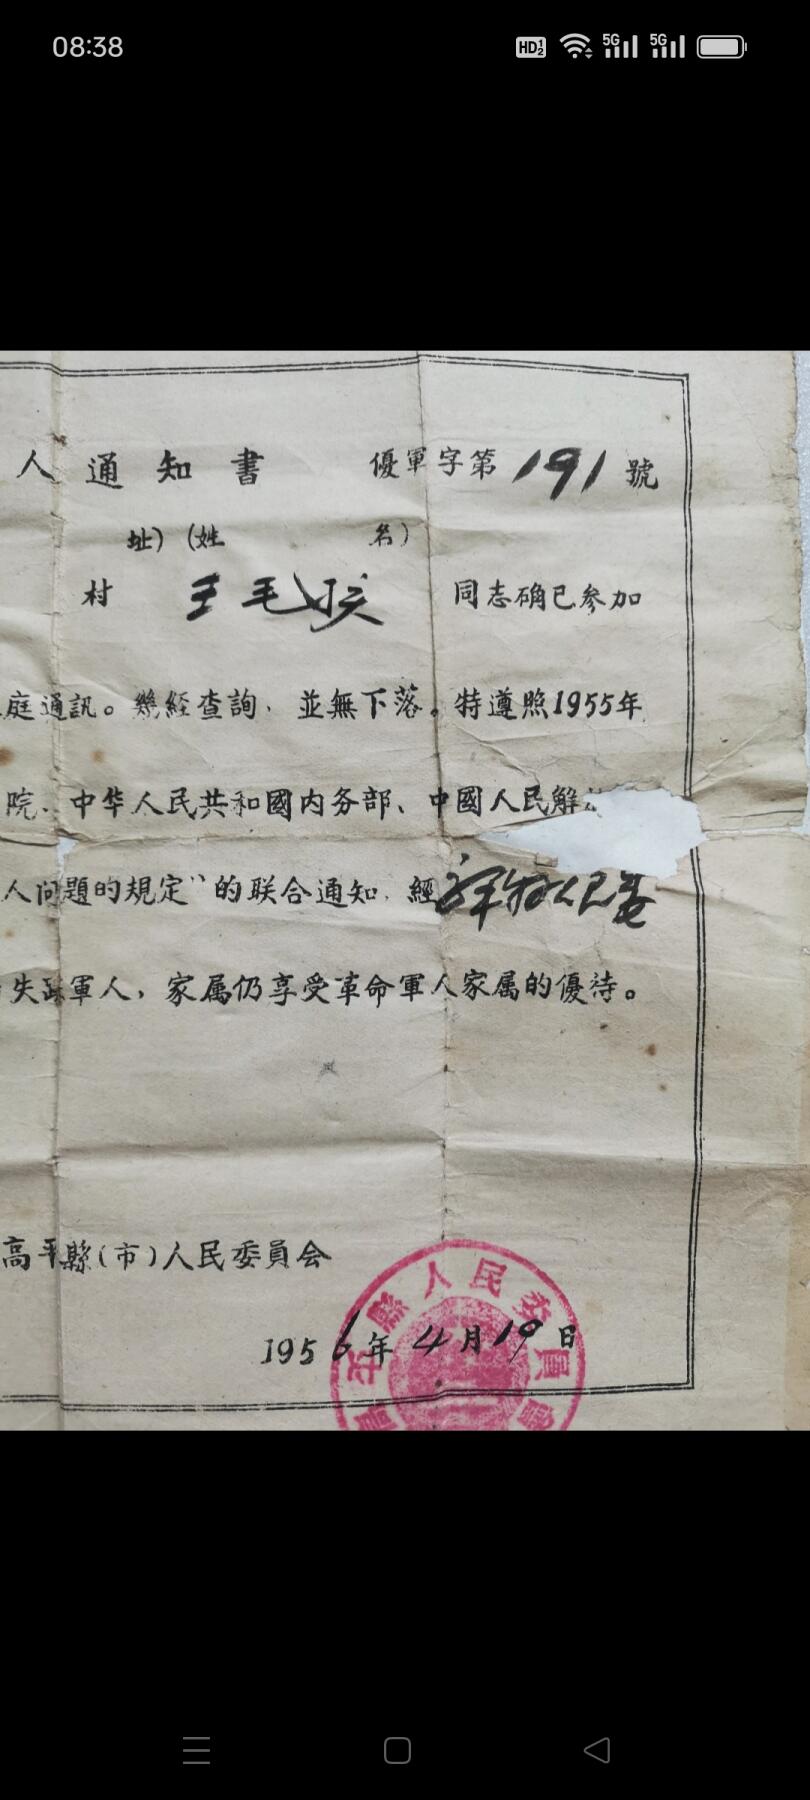 08:38
HD 1 2 5G 5G
人通知書 優軍字第191號
址）（姓 名）
村 王毛孩 同志确已参加
庭通訊。幾経查詢，並無下落。特遵照1955年
院、中华人民共和國内务部、中國人民解
人问题的規定"的联合通知，經
失踪軍人，家属仍享受革命軍人家属的優待。
高平縣（市）人民委員会
1956年4月19日
高平縣人民委員會